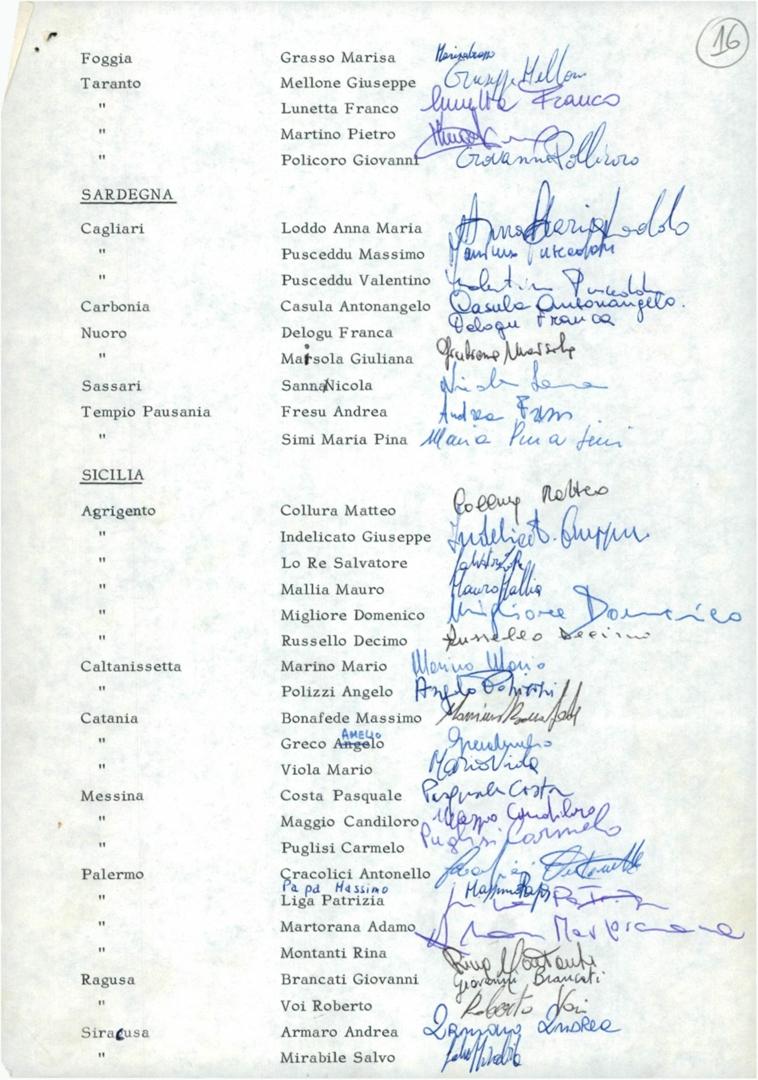 16
Foggia Grasso Marisa
Taranto Mellone Giuseppe Giuseppe Mellone
" Lunetta Franco Lunetta Franco
" Martino Pietro
" Policoro Giovanni Giovanni Pollicoro
SARDEGNA
Cagliari Loddo Anna Maria Anna Maria Loddo
" Pusceddu Massimo Massimo Pusceddu
" Pusceddu Valentino Valentino Pusceddu
Carbonia Casula Antonangelo Casula Antonangelo.
Nuoro Delogu Franca Delogu Franca
" Marsola Giuliana
Sassari Sanna Nicola Nicola Sanna
Tempio Pausania Fresu Andrea Andrea Fresu
" Simi Maria Pina Maria Pina Simi
SICILIA
Agrigento Collura Matteo Collura Matteo
" Indelicato Giuseppe Indelicato Giuseppe
" Lo Re Salvatore
" Mallia Mauro Mauro Mallia
" Migliore Domenico Migliore Domenico
" Russello Decimo Russello Decimo
Caltanissetta Marino Mario Marino Mario
" Polizzi Angelo Angelo Polizzi
Catania Bonafede Massimo Massimo Bonafede
AMELIO
" Greco Angelo
" Viola Mario Mario Viola
Messina Costa Pasquale Pasquale Costa
" Maggio Candiloro Maggio Candiloro
" Puglisi Carmelo Puglisi Carmelo
Palermo Cracolici Antonello
Papa Massimo Massimo Papa
" Liga Patrizia
" Martorana Adamo Adamo Martorana
" Montanti Rina Rina Montanti
Ragusa Brancati Giovanni Giovanni Brancati
" Voi Roberto Roberto Voi
Siracusa Armaro Andrea
" Mirabile Salvo Salvo Mirabile